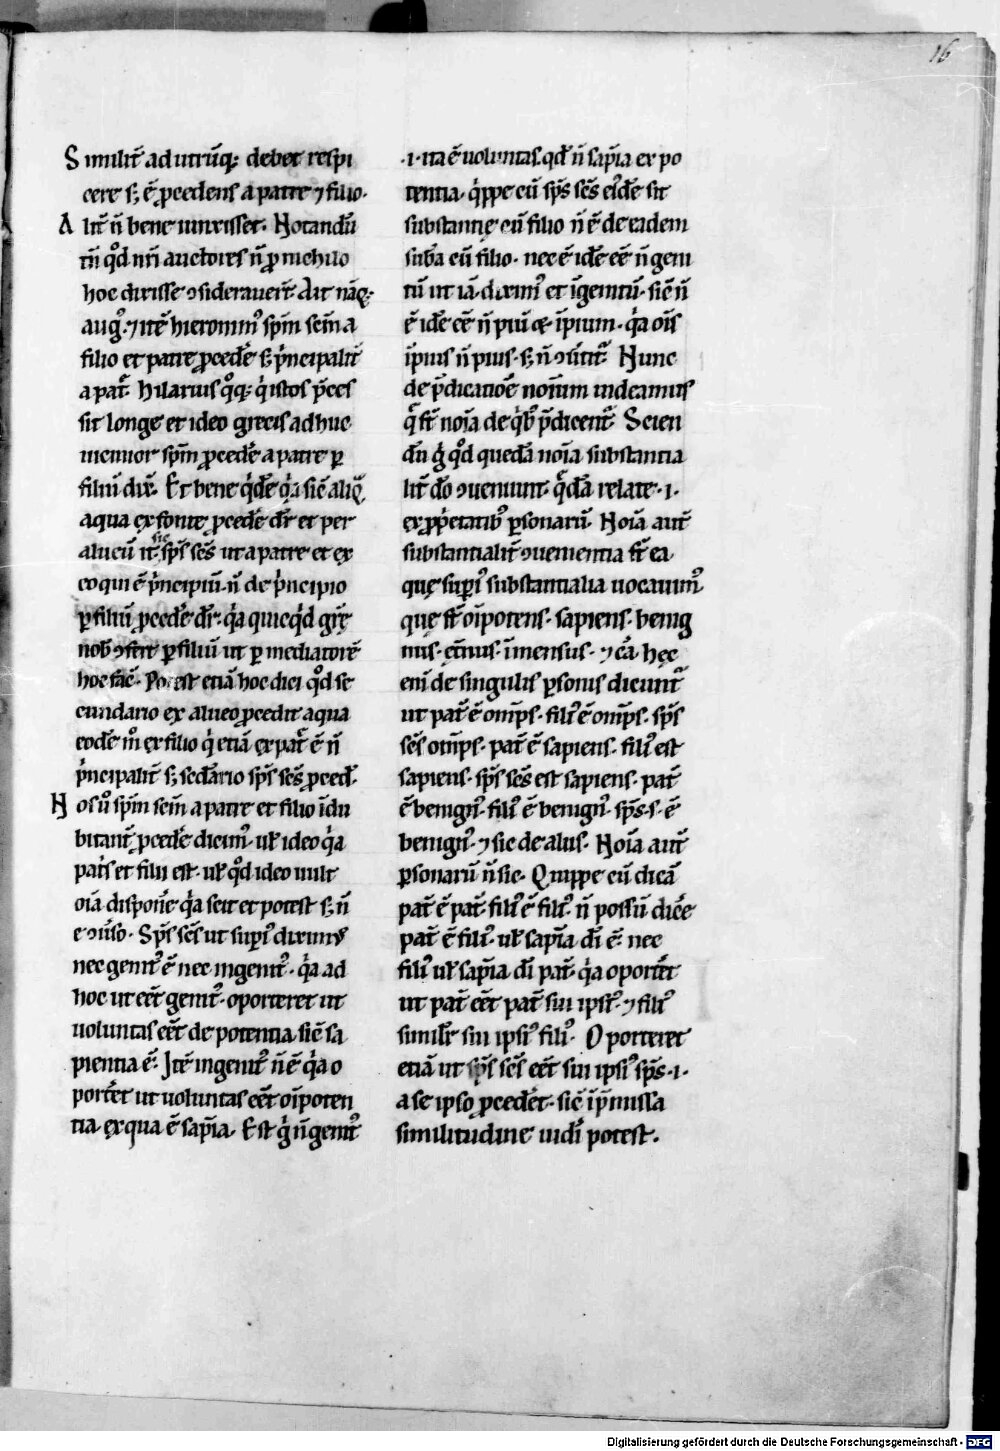 16
Similit̄ ad utrūq; debet respi
cere s; ē ꝓcedens a patre ⁊ filio.
Alit̄ n̄ bene iunxisset. Notandū
tn̄ qd̊ nr̄i auctores n̄ ꝓ nichilo
hoc dixisse ꝯsiderauer̄t. Ait nāq;
aug᷒. ⁊ itē hieronim᷒ spm̄ scm̄ a
filio et patre ꝓcedēe s; p̄ncipalit̄
a pat̄. hilarius qͦq; qͥ istos p̄ces
sit longe et ideo grecis adhuc
uicinior spm̄ ꝓcedēe a patre ꝑ
filiū dix̄. Et bene qͥdē qͥa sic̄ aliqͣ
aqua ex fonte ꝓcedēe dr̄ et per
alueū it̄ sic sp̄s sc̄s ut a patre et ex
eo qui ē pͥncipiū. n̄ de pͥncipio
ꝑ filiū ꝓcedēe dr̄. qͥa quicqͥd gr̄ę
nob̄ ꝯfert ꝑ filiū ut ꝑ mediatorē
hoc fac̄. Potest etiā hoc dici qd̊ se
cundario ex alueo ꝓcedit aqua
eodē m̊ ex filio qͥ etiā ex pat̄ ē n̄
pͥncipalit̄ s; sedārio sp̄s sc̄s ꝓced̄.
Nos ů spm̄ scm̄ a patre et filio īdu
bitant̄ ꝓcedēe dicim᷒. ul̄ ideo qͥa
pat̄s et filii est. ul̄ qd̊ ideo uult
oīa disponēe qͥa scit et potest s; n̄
e ꝯuͥso. Sp̄s sc̄s ut supͥ diximus
nec genit᷒ ē nec ingenit᷒. qͥa ad
hoc ut eēt genit᷒. oporteret ut
uoluntas eēt de potentia sic̄ sa
pientia ē. Itē ingenit᷒ n̄ ē qͥa o
portēt ut uoluntas eēt oīpoten
tia. ex qua ē sap̄ia. Est gͥ n̄ genit᷒
.i. ita ē uoluntas. qd̄ n̄ sap̄ia ex po
tentia. qͥppe cū sp̄s sc̄s eiͥdē sit
substantię cū filio n̄ ē de eadem
sub̄a cū filio. nec ē idē eē n̄ geni
tū ut iā dixim᷒ et īgenitū. sic̄ n̄
ē idē eē n̄ piū & īpium. qͥa oīs
īpius n̄ pius. s; n̄ ꝯuͥtit̄. Nunc
de p̄dicatiōe noīum uideamus
qͣ st̄ noīa de qͥb᷒ p̄dicent̄. Scien
dū gͥ qd̊ quedā noīa substantia
lit̄ dō ꝯueniunt. qͣdā relate. i.
ex ꝓpͥetatib᷒ ꝑsonarū. Noīa aut̄
substantialit̄ ꝯuenientia st̄ ea
quę supͥ substantialia uocauim᷒
quę st̄ oīpotens. sapiens. benig
nus. et̄nus. īmensus. ⁊ cͣ. hęc
eni̅ de singulis ꝑsonis dicunt̄
ut pat̄ ē omp̄s. fili᷒ ē omp̄s. sp̄s
sc̄s omp̄s. pat̄ ē sapiens. fili᷒ est
sapiens. sp̄s sc̄s est sapiens. pat̄
ē benign᷒. fili᷒ ē benign᷒. sp̄s. s. ē
benign᷒. ⁊ sic de aliis. Noīa aut̄
ꝑsonarū n̄ sic. Quippe cū dicā
pat̄ ē pat̄. fili᷒ ē fili᷒. n̄ possū dicēe
pat̄ ē fili᷒. ul̄ sap̄ia di̅ ē. nec
fili᷒ ul̄ sap̄ia di̅ pat̄. qͥa oportēt
ut pat̄ eēt pat̄ sui ipsi᷒. ⁊ fili᷒
simil̄r sui ipsi᷒ fili᷒. Oporteret
etiā ut sp̄s sc̄s eēt sui ipsi᷒ sp̄s. i.
a se ipso ꝓcedēt. sic̄ ip̄missa
similitudine uidi̅ potest.
Digitalisierung gefördert durch die Deutsche Forschungsgemeinschaft - DFG